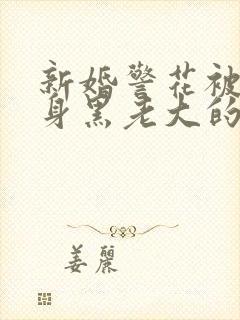 新婚警花被
身黑老大的
姜麗